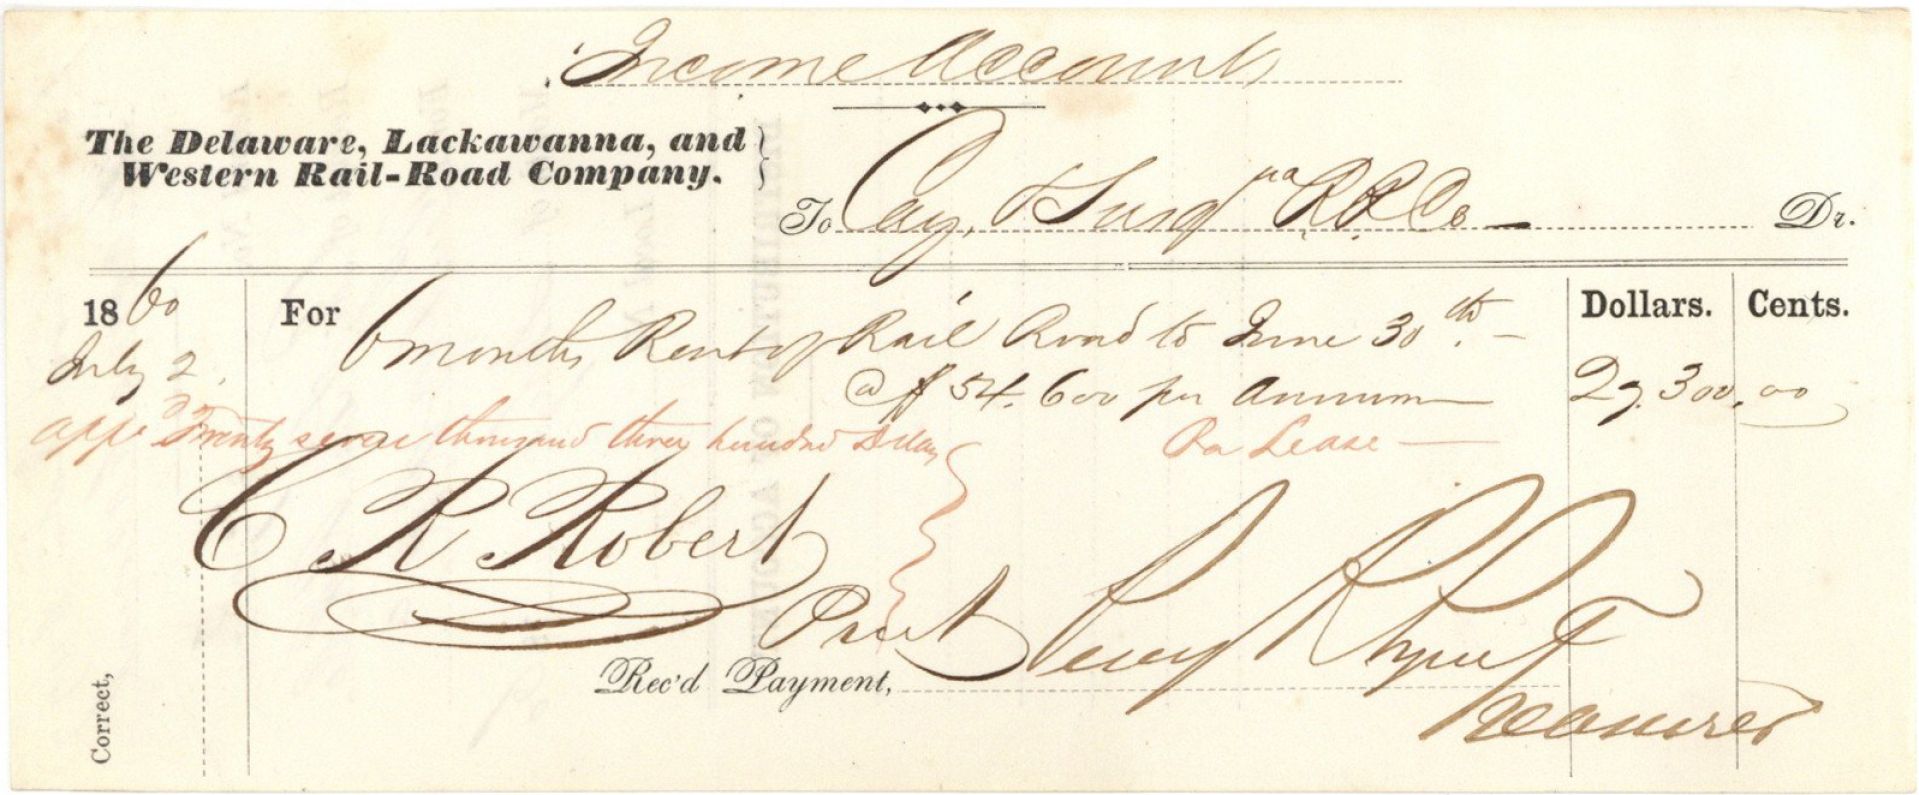 Income Account
The Delaware, Lackawanna, and
Western Rail-Road Company.
To Cay. & Susqna R.R.Co Dr.
1860 For 6 months Rent of Rail Road to June 30th. Dollars. Cents.
July 2. @ $54.600 per annum 27.300.00
app. Twenty seven thousand three hundred Dollars Per Lease
C R Robert
Prest
Rec'd Payment, Percy R Pyne
Treasurer
Correct,